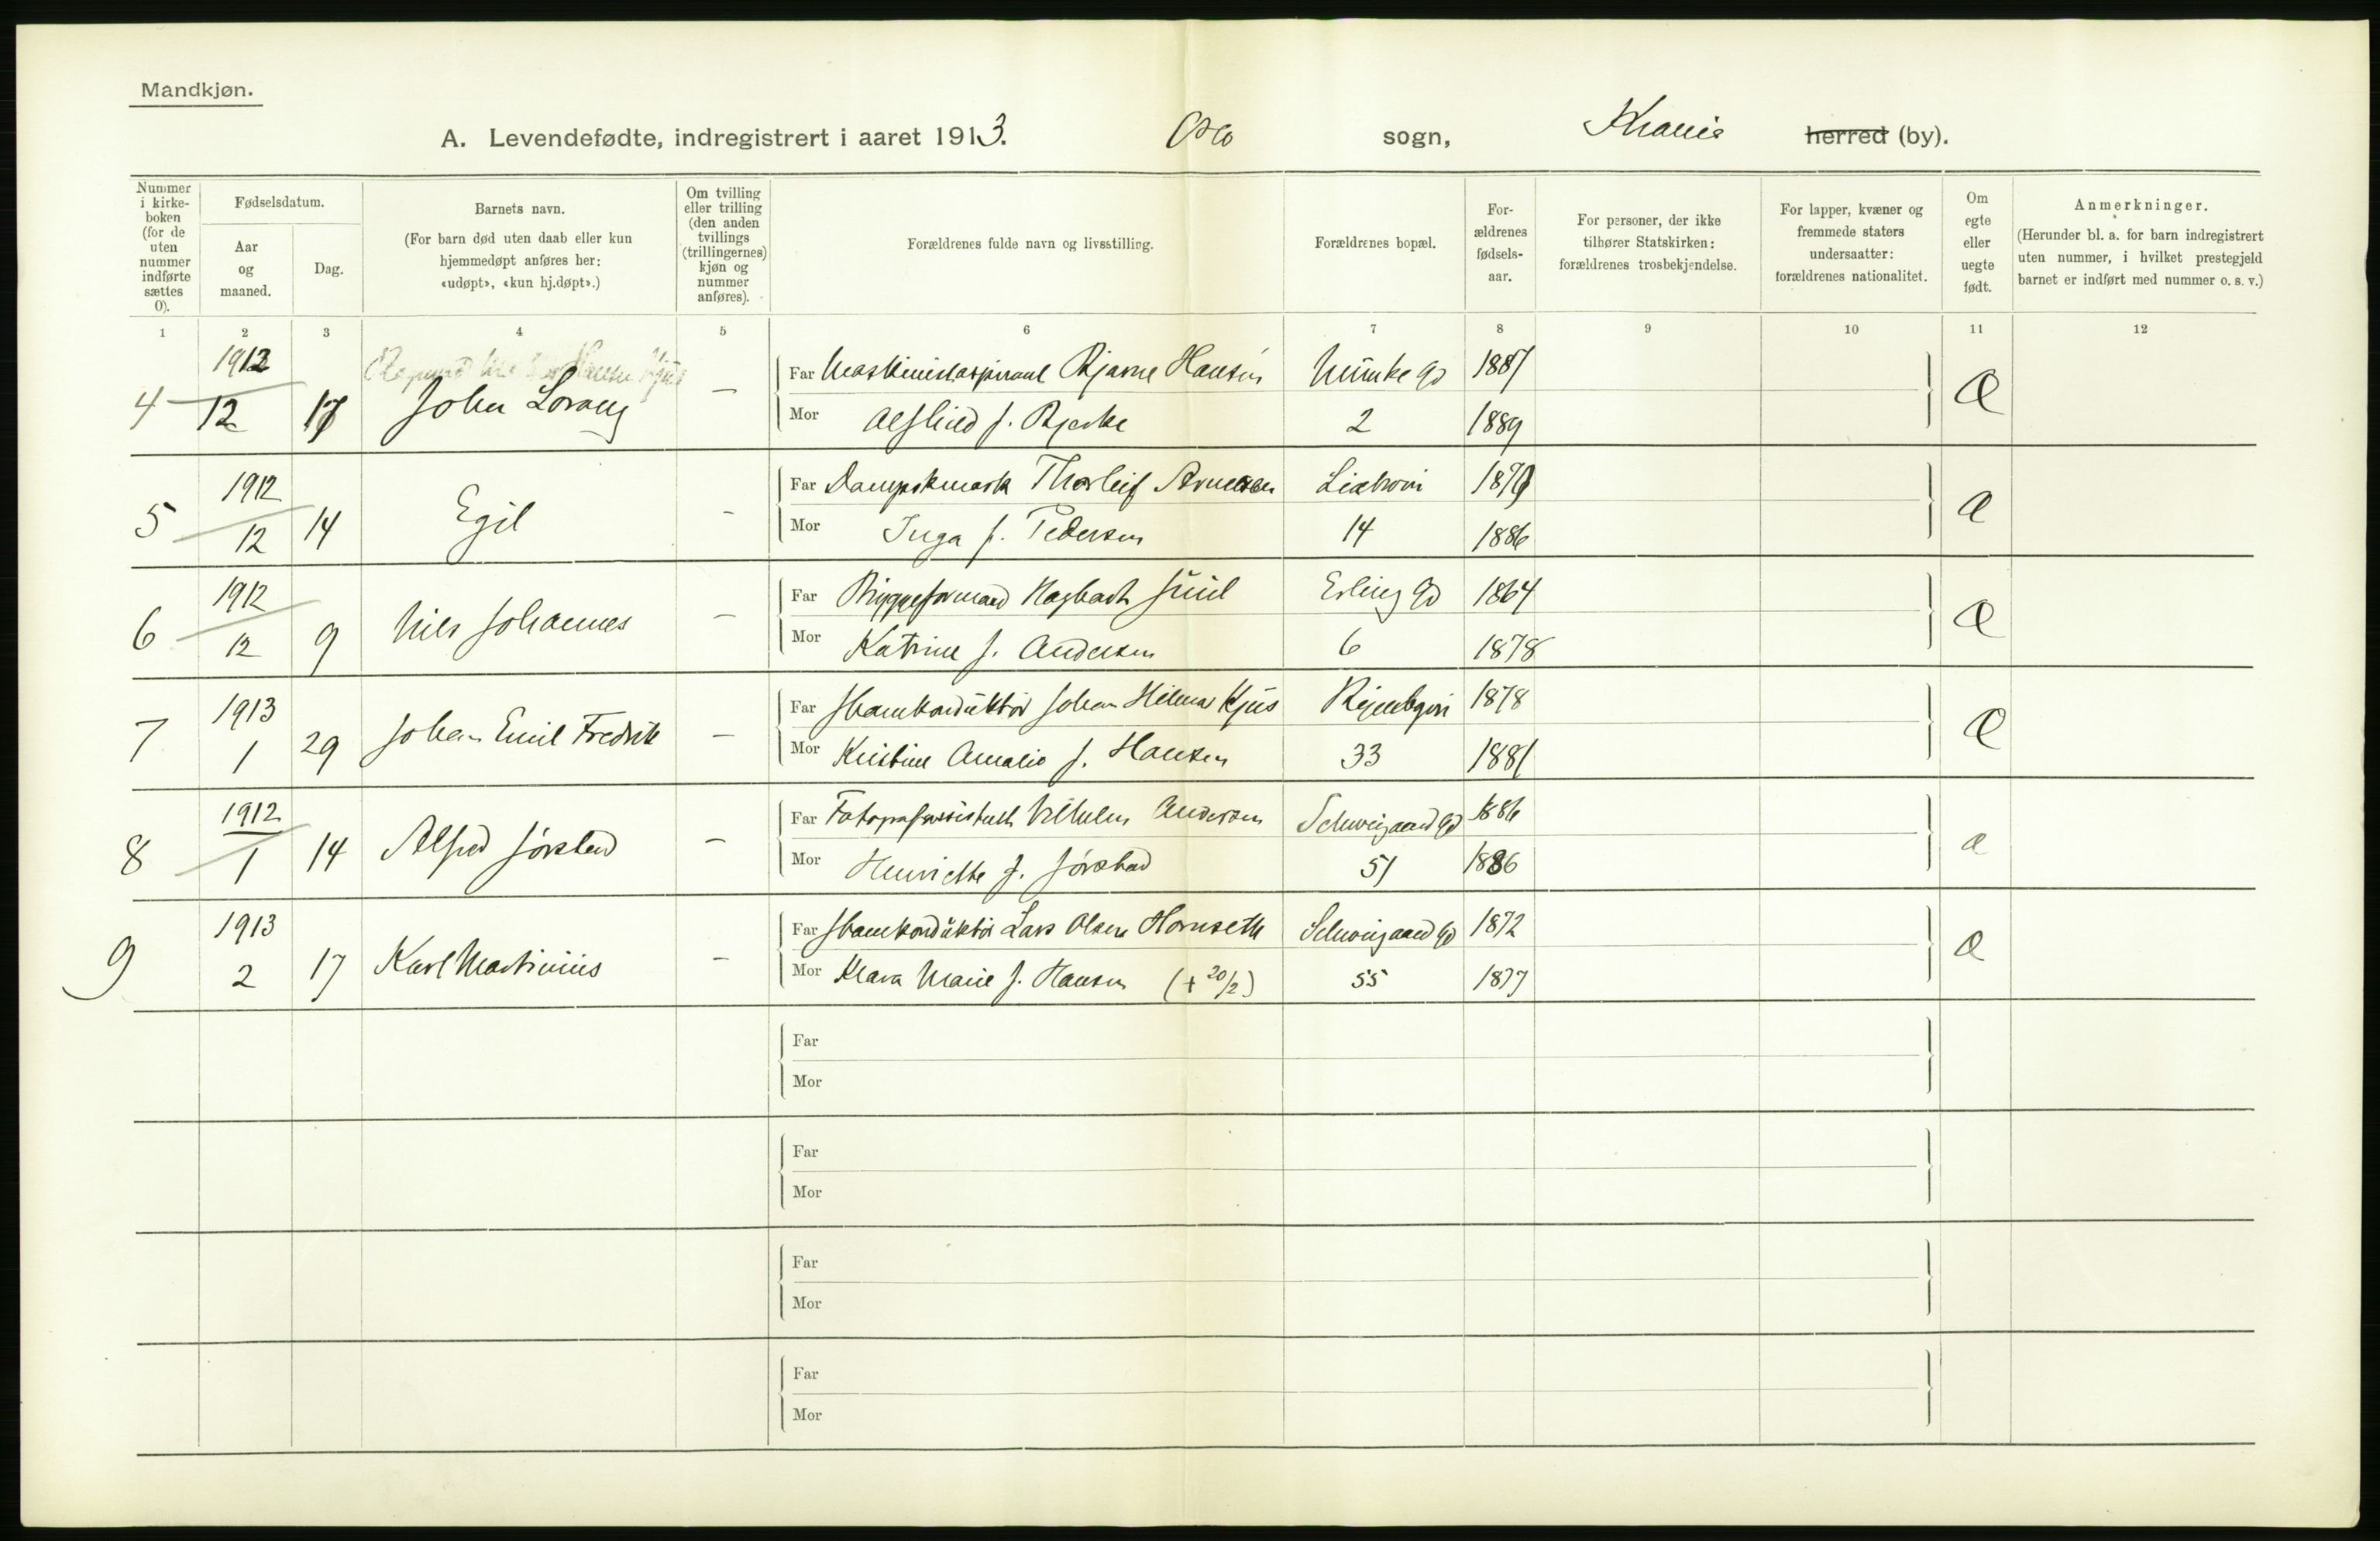 Mandkjøn.
A. Levendefødte, indregistrert i aaret 1913. Oslo sogn, Krania herred (by).
Nummer i kirkeboken (for de uten nummer indførte sættes 0).
Fødselsdatum.
Aar og maaned.
Dag.
Barnets navn.
(For barn død uten daab eller kun hjemmedøpt anføres her: «udøpt», «kun hj.døpt».)
Om tvilling eller trilling (den anden tvillings (trillingernes) kjøn og nummer anføres).
Forældrenes fulde navn og livsstilling.
Forældrenes bopæl.
Forældrenes fødselsaar.
For personer, der ikke tilhører Statskirken: forældrenes trosbekjendelse.
For lapper, kvæner og fremmede staters undersaatter: forældrenes nationalitet.
Om egte eller uegte født.
Anmerkninger.
(Herunder bl. a. for barn indregistrert uten nummer, i hvilket prestegjeld barnet er indført med nummer o. s. v.)
1 2 3 4 5 6 7 8 9 10 11 12
1912 Far Maskinistaspirant Bjarne Hansen Munke Gd 1887
4 12 17 John Lorang – Mor Alfhild f. Bjerke 2 1889 Æ
1912 Far Dampskmask Thorleif Arnesen 1879
5 12 14 Egil – Mor Inga f. Pedersen 14 1886 Æ
1912 Far Bryggeformand Hagbart Juul Erling Gd 1864
6 12 9 Nils Johannes – Mor Katrine f. Andersen 6 1878 Æ
1913 Far Skamkonduktør Johan Hilmar Kjus 1878
7 1 29 Johan Emil Fredrik – Mor Kristine Amalie f. Hansen 33 1881 Æ
1912 Far Fotografassistent Vilhelm Andersen Schweigaard Gd 1886
8 1 14 Alfred Jørstad – Mor Henriette f. Jørstad 51 1886 Æ
1913 Far Skamkonduktør Lars Olsen Hornseth Schweigaard Gd 1872
9 2 17 Karl Martinius – Mor Klara Marie f. Hansen (+ 20/2) 55 1877 Æ
Far
Mor
Far
Mor
Far
Mor
Far
Mor